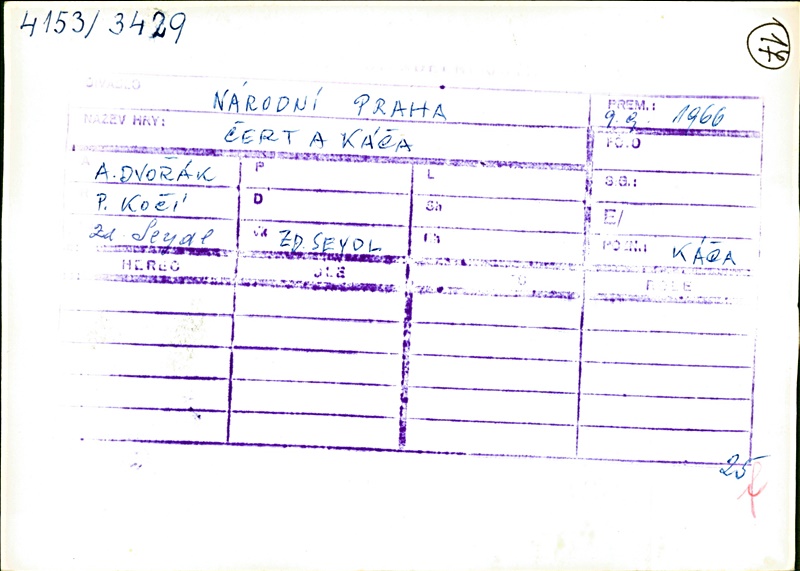 4153/3429
17
DIVADLO
NÁRODNÍ PRAHA
PREM.:
9.9. 1966
NÁZEV HRY:
ČERT A KÁČA
FOTO
A. DVOŘÁK
P
L
S.G.:
P. KOČÍ
D
Sh
E/
Zd. Seydl
VK
ZD. SEYDL
Ch
POZN.:
KÁČA
HEREC
ROLE
25